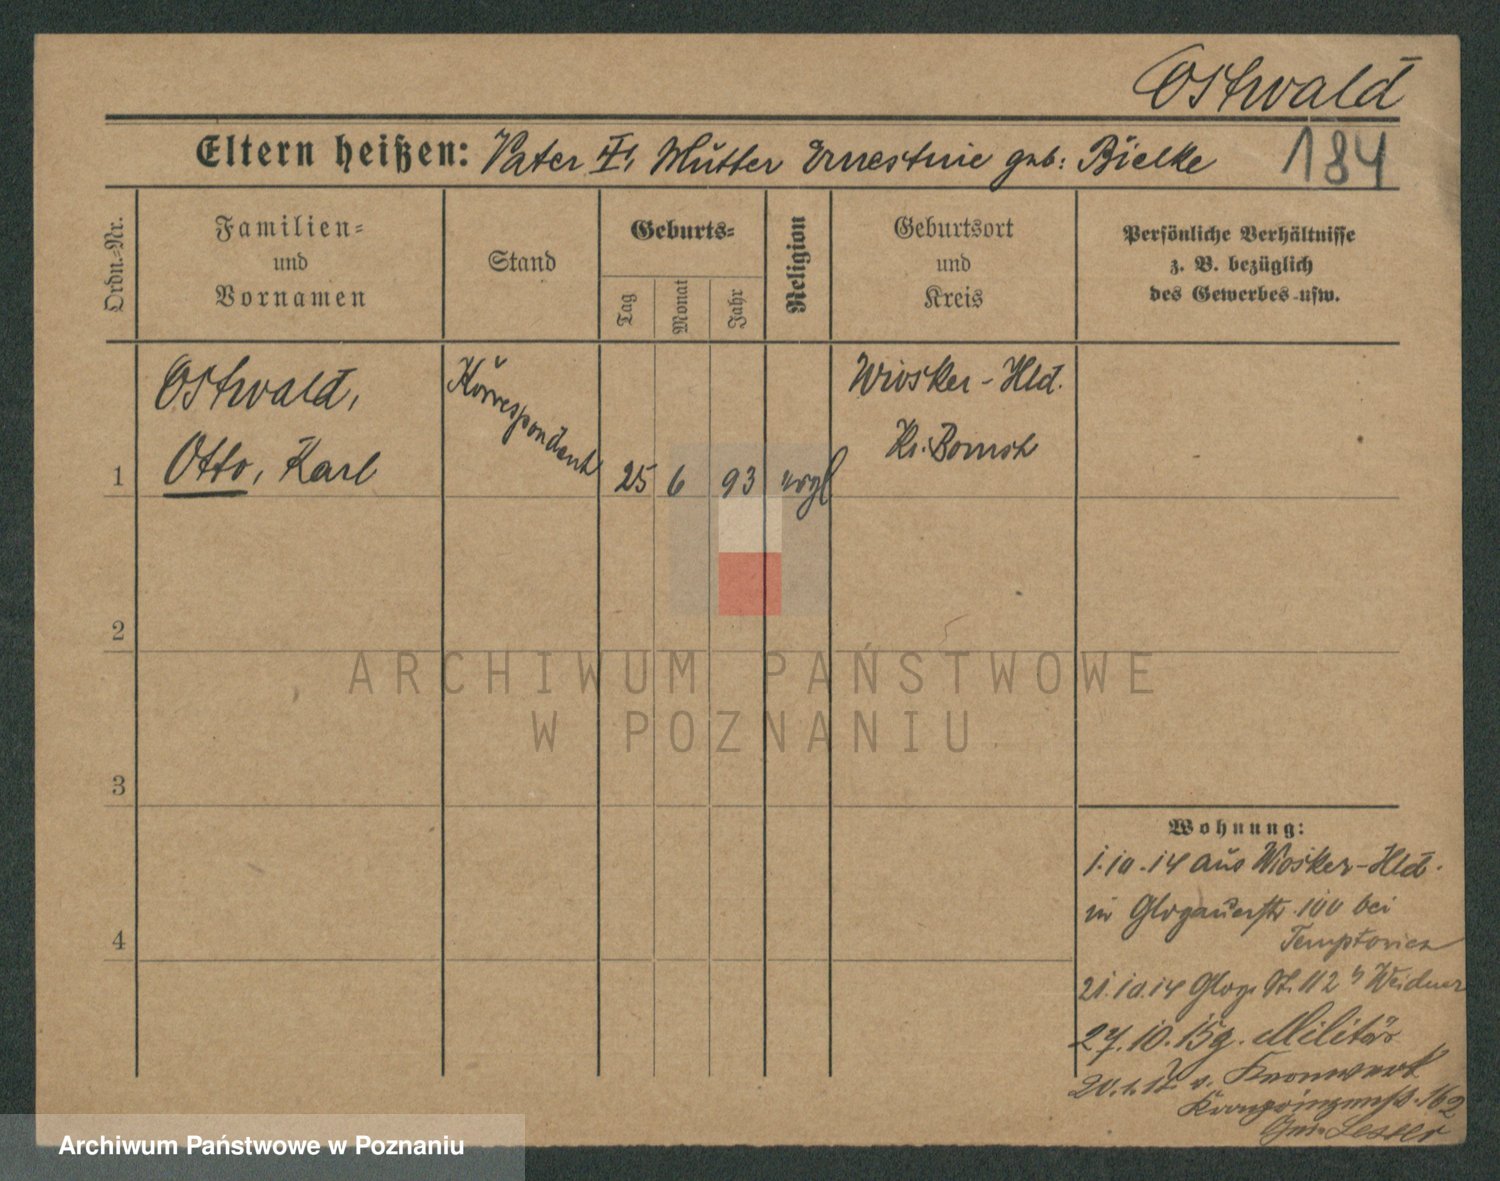 Ostwald
Eltern heißen: Vater †, Mutter Ernestine geb: Bielke
184
Ordn.-Nr.
Familien-
und
Vornamen
Stand
Geburts-
Tag
Monat
Jahr
Religion
Geburtsort
und
Kreis
Persönliche Verhältnisse
z. B. bezüglich
des Gewerbes usw.
1
Ostwald,
Otto, Karl
Korrespondent
25 6 93 evgl
Wiosker-Hld.
Kr. Bomst
2
3
4
Wohnung:
1.10.14 aus Wiosker-Hld.
in Glogauerstr. 100 bei
21.10.14 Glog. St. 112 Weidner
27.10.15 g. Militär
20.1.17 v. Kronwerk
Kronprinzenstr. 162
Lesser
ARCHIWUM PAŃSTWOWE
W POZNANIU
Archiwum Państwowe w Poznaniu